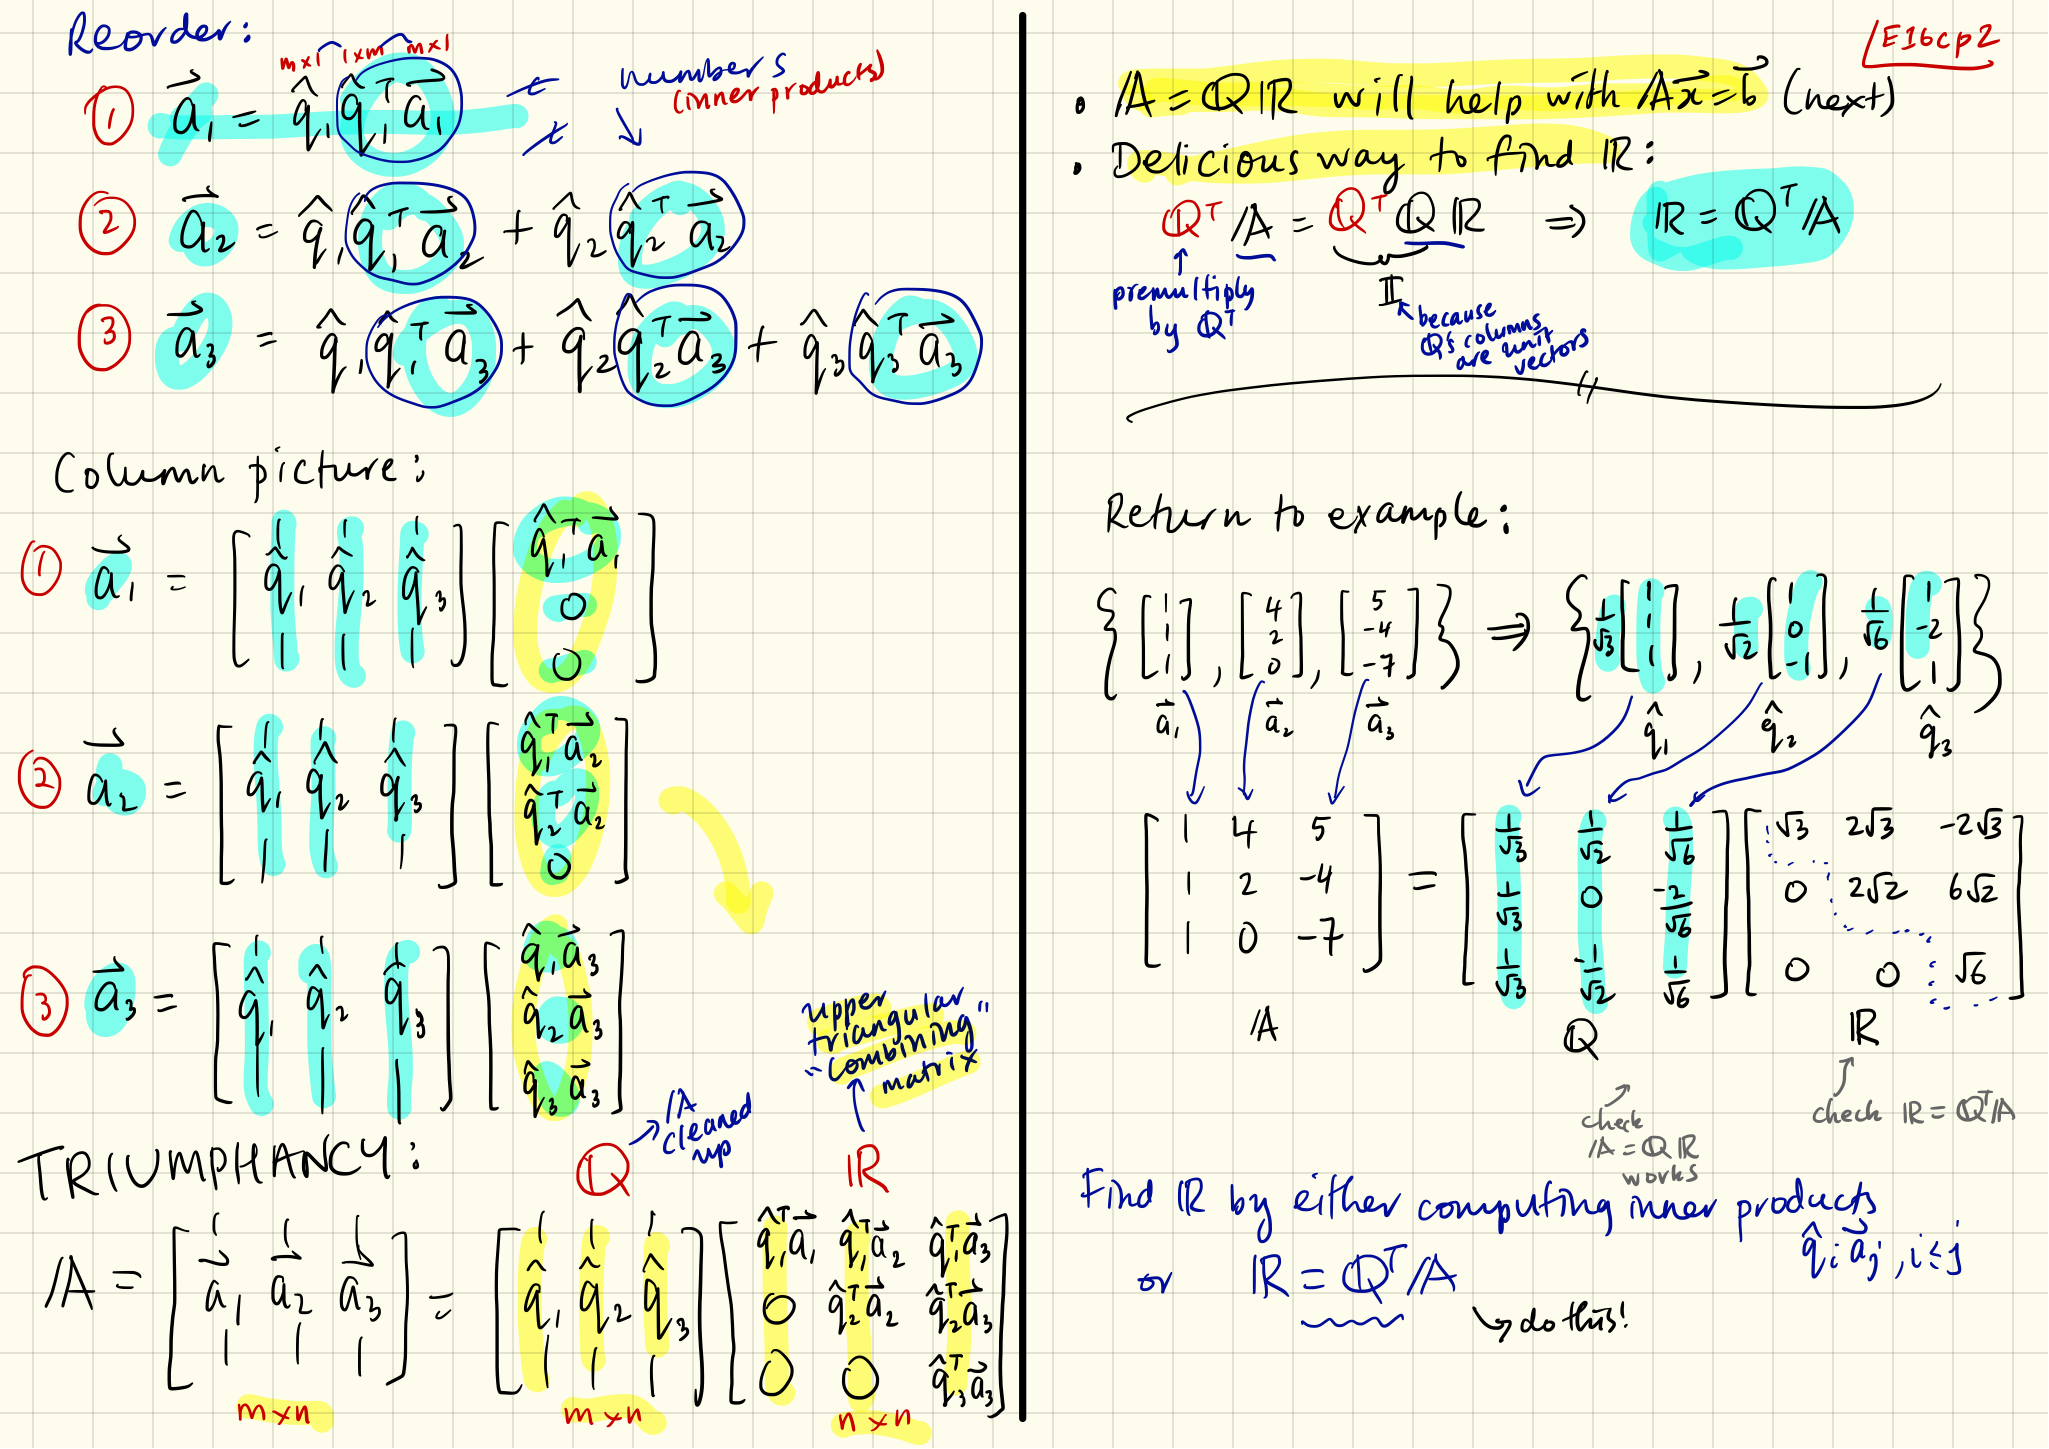 Reorder:
m×1 1×m m×1
① a⃗₁ = q̂₁ q̂₁ᵀ a⃗₁
numbers
(inner products)
② a⃗₂ = q̂₁ q̂₁ᵀ a⃗₂ + q̂₂ q̂₂ᵀ a⃗₂
③ a⃗₃ = q̂₁ q̂₁ᵀ a⃗₃ + q̂₂ q̂₂ᵀ a⃗₃ + q̂₃ q̂₃ᵀ a⃗₃
Column picture:
① a⃗₁ = [ q̂₁ q̂₂ q̂₃ ] [ q̂₁ᵀ a⃗₁
0
0 ]
② a⃗₂ = [ q̂₁ q̂₂ q̂₃ ] [ q̂₁ᵀ a⃗₂
q̂₂ᵀ a⃗₂
0 ]
③ a⃗₃ = [ q̂₁ q̂₂ q̂₃ ] [ q̂₁ a⃗₃
q̂₂ a⃗₃
q̂₃ a⃗₃ ]
upper
triangular
"combining"
matrix
A
cleaned
up
TRIUMPHANCY:
Q R
A = [ a⃗₁ a⃗₂ a⃗₃ ] = [ q̂₁ q̂₂ q̂₃ ] [ q̂₁ᵀa⃗₁ q̂₁ᵀa⃗₂ q̂₁ᵀa⃗₃
0 q̂₂ᵀa⃗₂ q̂₂ᵀa⃗₃
0 0 q̂₃ᵀa⃗₃ ]
m×n m×n n×n
E16cp2
• A = QR will help with Ax⃗ = b⃗ (next)
• Delicious way to find R:
Qᵀ A = Qᵀ Q R ⇒ R = Qᵀ A
premultiply
by Qᵀ
I
because
Q's columns
are unit
vectors
Return to example:
{ [ 1 1 1 ], [ 4 2 0 ], [ 5 -4 -7 ] } ⇒ { 1/√3 [ 1 1 1 ], 1/√2 [ 1 0 -1 ], 1/√6 [ 1 -2 1 ] }
a⃗₁ a⃗₂ a⃗₃ q̂₁ q̂₂ q̂₃
[ 1 4 5 ] [ 1/√3 1/√2 1/√6 ] [ √3 2√3 -2√3 ]
[ 1 2 -4 ] = [ 1/√3 0 -2/√6 ] [ 0 2√2 6√2 ]
[ 1 0 -7 ] [ 1/√3 -1/√2 1/√6 ] [ 0 0 √6 ]
A Q R
check
A = QR
works
check R = QᵀA
Find R by either computing inner products
q̂ᵢ a⃗ⱼ, i ≤ j
or R = QᵀA
do this!